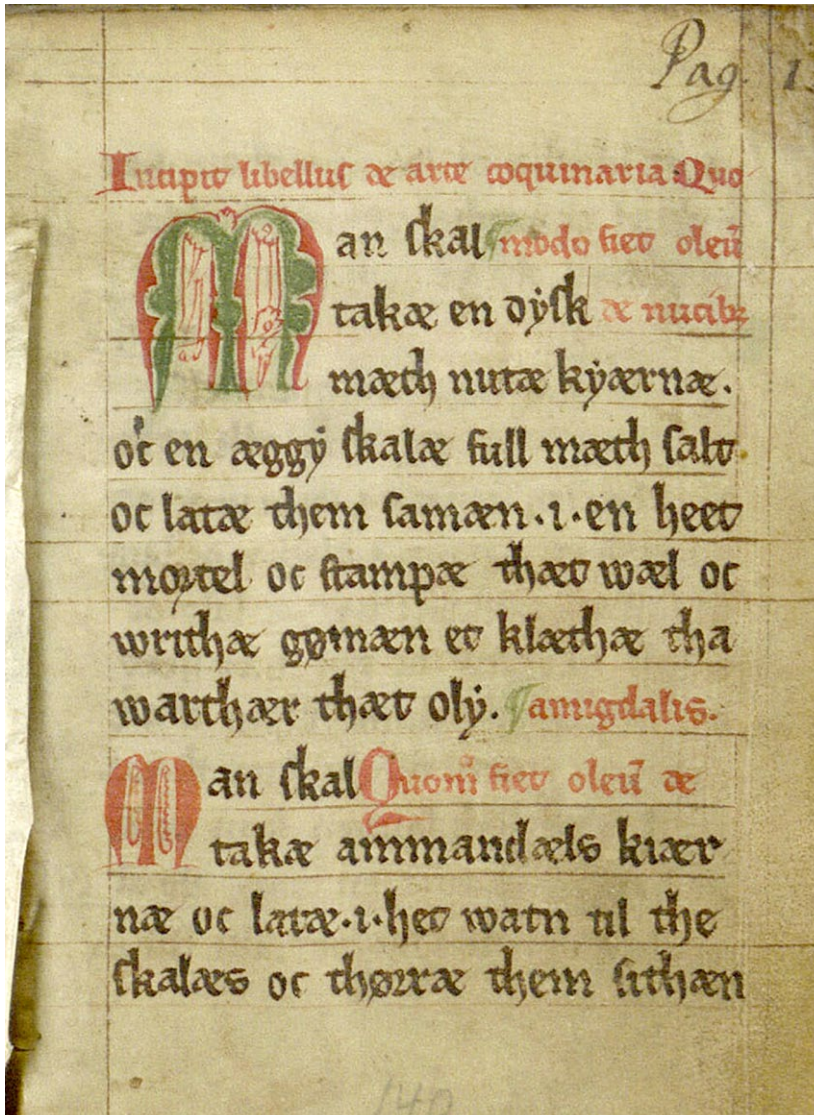 Pag. 1.
Incipit libellus de arte coquinaria Quo
Man skal modo fiet oleū
takæ en dysk de nucibꝫ
mæth nutæ kyærnæ.
oc en æggy skalæ full mæth salt
oc latæ them samæn·i·en heet
mortel oc stampæ thæt wæl oc
writhæ gømæn et klæthæ tha
warthær thæt oly. ¶amigdalis.
Man skal Quom̄ fiet oleū de
takæ ammandæls kiær
næ oc latæ·i·het watn til the
skalæs oc thørræ them sithæn
140